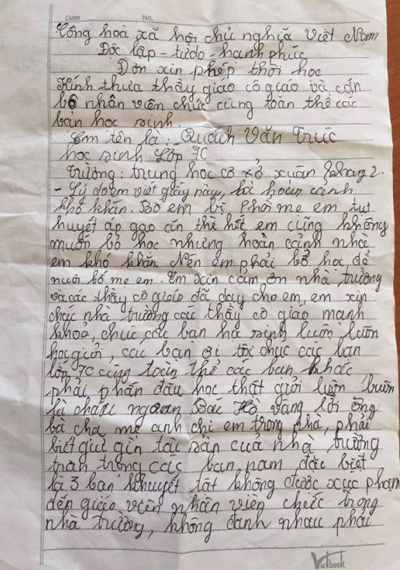 Date No.
Cộng hoà xã hội chủ nghĩa Việt Nam
Độc lập - tự do - hạnh phúc
Đơn xin phép thôi học
Kính thưa thầy giáo cô giáo và cán
bộ nhân viên chức cùng toàn thể các
bạn học sinh
Em tên là: Quách Văn Trúc
học sinh lớp 7C
Trường: trung học cơ sở xuân phang 2.
- Lí do em viết giấy này, là hoàn cảnh
khó khăn. Bố em bị phổi mẹ em tụt
huyết áp gạo ăn thì hết em cũng không
muốn bỏ học nhưng hoàn cảnh nhà
em khó khăn. Nên em phải bỏ học để
nuôi bố mẹ em. Em xin cảm ơn nhà trường
và các thầy cô giáo đã dạy cho em, em xin
chúc nhà trường các thầy cô giáo mạnh
khoẻ, chúc các bạn học sinh luôn luôn
học giỏi, các bạn ơi tôi chúc các bạn
lớp 7C cùng toàn thể các bạn khác
phải phấn đấu học thật giỏi luôn luôn
là cháu ngoan Bác Hồ vâng lời ông
bà cha mẹ anh chị em trong nhà, phải
biết giữ gìn tài sản của nhà trường
trân trọng các bạn, nam đặc biệt
là 3 bạn khuyết tật không được xúc phạm
đến giáo viên nhân viên chức trong
nhà trường, không đánh nhau phải
Vietbook